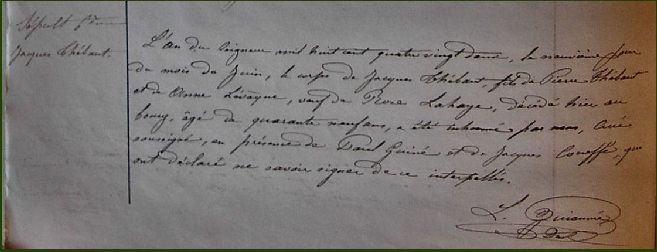 Sépult. 
Jacques Thébaut.
L'an du Seigneur mil huit cent quatre vingt douze, le neuvième jour
du mois de Juin, le corps de Jacques Thébaut, fils de Pierre Thébaut
et de Anne Lévêque, veuf de Rose Lahaye, décédé hier au
bourg, âgé de quarante neuf ans, a été inhumé par nous, Curé
soussigné, en présence de Paul Guiné et de Jacques Coueffé, qui
ont déclaré ne savoir signer de ce interpellés.
L.